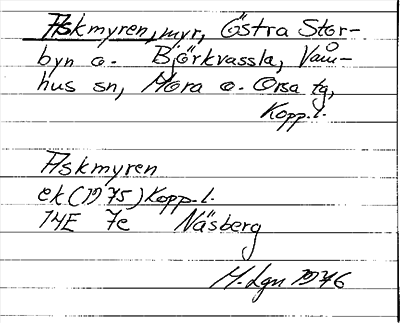 Askmyren, myr, Östra Stor-
byn o. Björkvassla, Våm-
hus sn, Mora o. Orsa tg,
Kopp.l.
Askmyren
ek (1975) Kopp.l.
14E 7e Näsberg
M. Lgn 1976